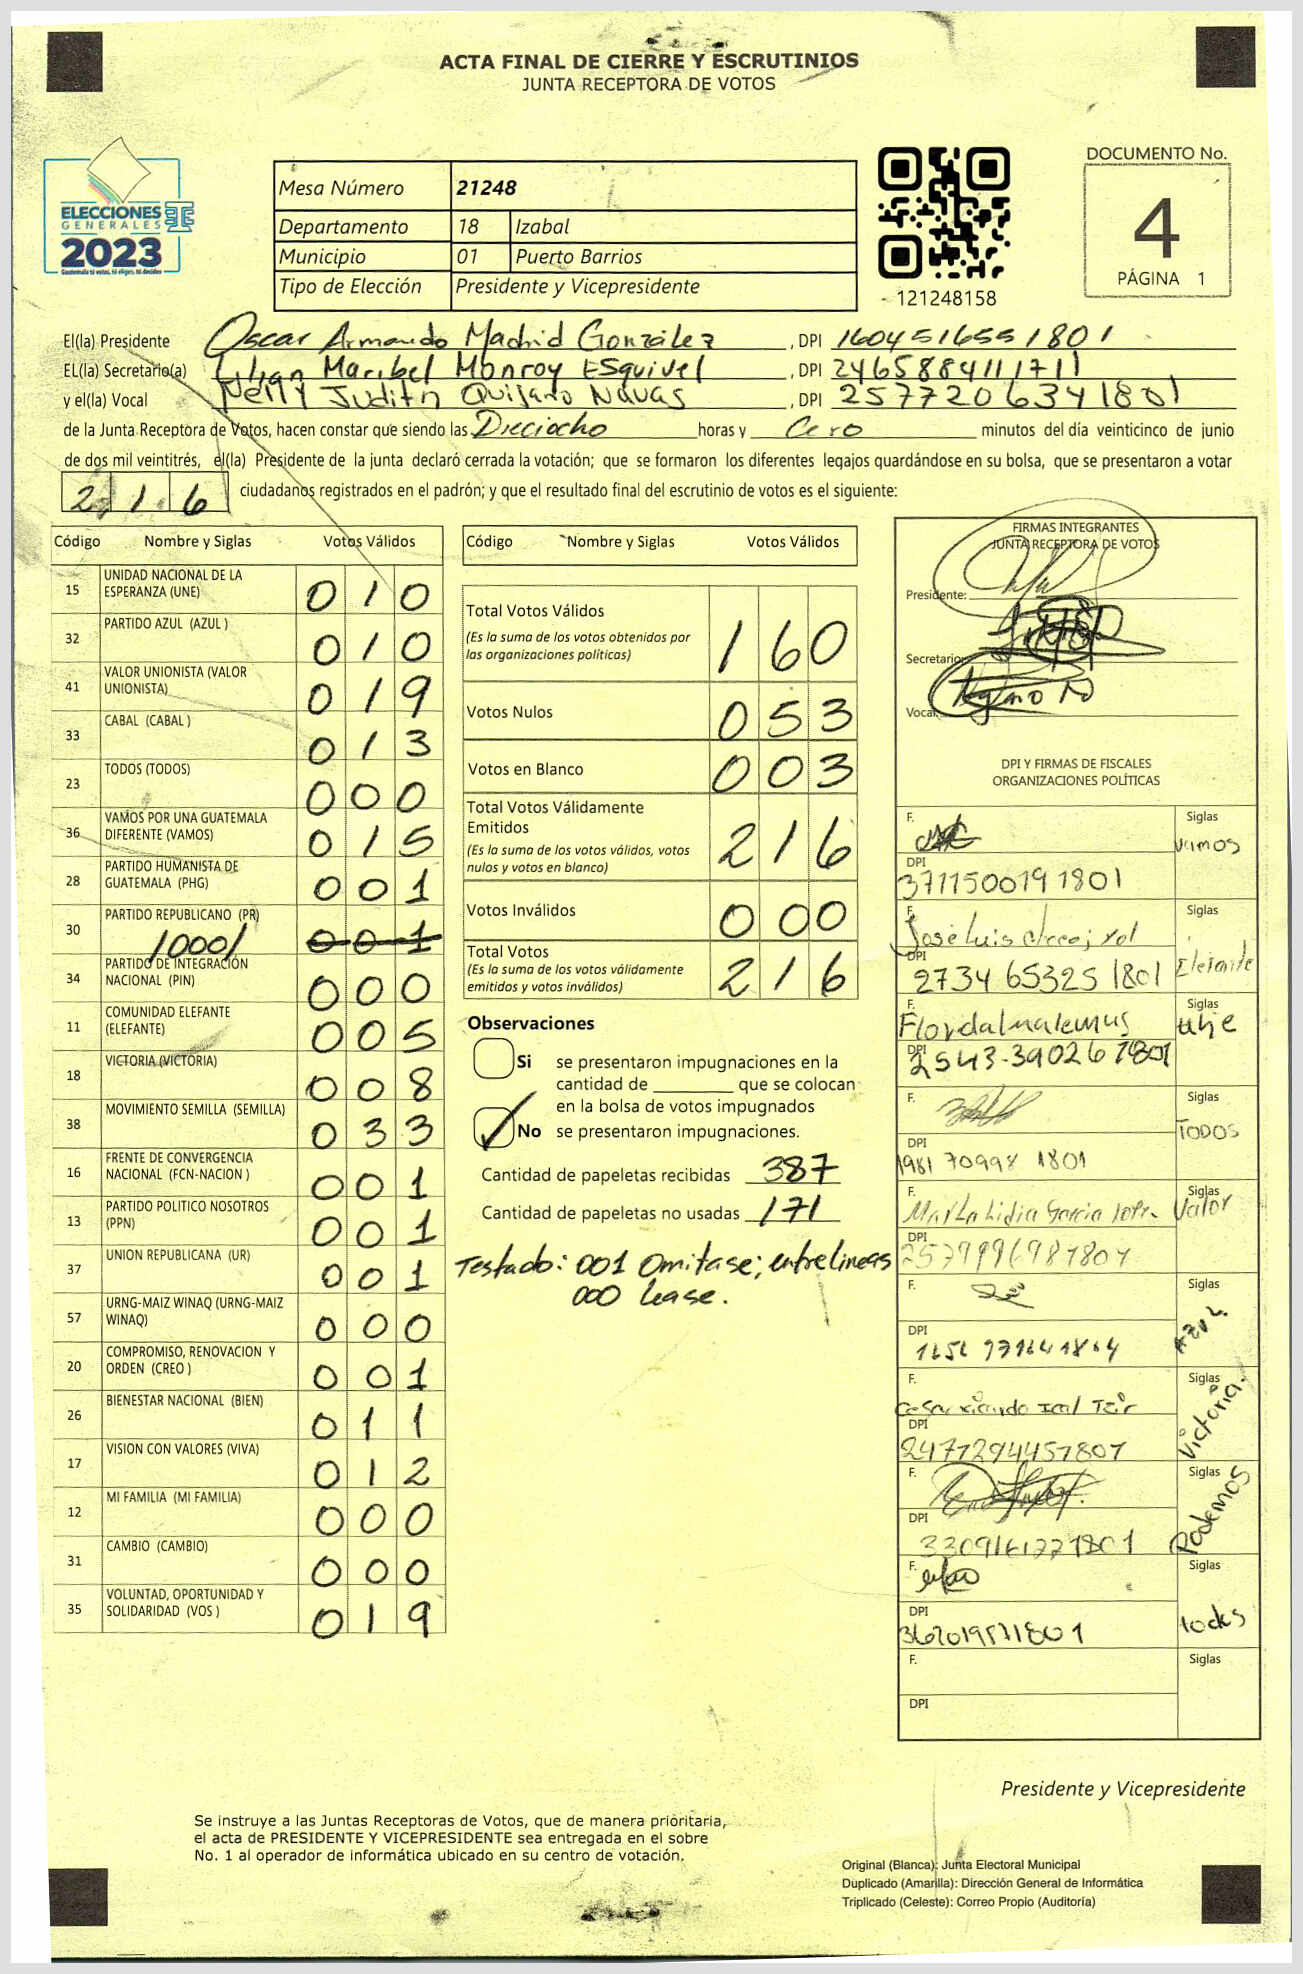 ACTA FINAL DE CIERRE Y ESCRUTINIOS
JUNTA RECEPTORA DE VOTOS
ELECCIONES
GENERALES
2023
Guatemala tú votas, tú eliges, tú decides
Mesa Número 21248
Departamento 18 Izabal
Municipio 01 Puerto Barrios
Tipo de Elección Presidente y Vicepresidente
121248158
DOCUMENTO No.
4
PÁGINA 1
El(la) Presidente Oscar Armando Madrid González, DPI 1604516551801
EL(la) Secretario(a) Lilian Maribel Monroy Esquivel, DPI 2465884111711
y el(la) Vocal Nelly Judith Quijano Navas, DPI 2577206341801
de la Junta Receptora de Votos, hacen constar que siendo las Dieciocho horas y Cero minutos del día veinticinco de junio
de dos mil veintitrés, el(la) Presidente de la junta declaró cerrada la votación; que se formaron los diferentes legajos guardándose en su bolsa, que se presentaron a votar
216 ciudadanos registrados en el padrón; y que el resultado final del escrutinio de votos es el siguiente:
Código Nombre y Siglas Votos Válidos
15 UNIDAD NACIONAL DE LA ESPERANZA (UNE) 010
32 PARTIDO AZUL (AZUL ) 010
41 VALOR UNIONISTA (VALOR UNIONISTA) 019
33 CABAL (CABAL ) 013
23 TODOS (TODOS) 000
36 VAMOS POR UNA GUATEMALA DIFERENTE (VAMOS) 015
28 PARTIDO HUMANISTA DE GUATEMALA (PHG) 001
30 PARTIDO REPUBLICANO (PR) /000/ 001
34 PARTIDO DE INTEGRACIÓN NACIONAL (PIN) 000
11 COMUNIDAD ELEFANTE (ELEFANTE) 005
18 VICTORIA (VICTORIA) 008
38 MOVIMIENTO SEMILLA (SEMILLA) 033
16 FRENTE DE CONVERGENCIA NACIONAL (FCN-NACION ) 001
13 PARTIDO POLITICO NOSOTROS (PPN) 001
37 UNION REPUBLICANA (UR) 001
57 URNG-MAIZ WINAQ (URNG-MAIZ WINAQ) 000
20 COMPROMISO, RENOVACION Y ORDEN (CREO ) 001
26 BIENESTAR NACIONAL (BIEN) 011
17 VISION CON VALORES (VIVA) 012
12 MI FAMILIA (MI FAMILIA) 000
31 CAMBIO (CAMBIO) 000
35 VOLUNTAD, OPORTUNIDAD Y SOLIDARIDAD (VOS ) 019
Código Nombre y Siglas Votos Válidos
Total Votos Válidos 160
(Es la suma de los votos obtenidos por
las organizaciones políticas)
Votos Nulos 053
Votos en Blanco 003
Total Votos Válidamente
Emitidos 216
(Es la suma de los votos válidos, votos
nulos y votos en blanco)
Votos Inválidos 000
Total Votos 216
(Es la suma de los votos válidamente
emitidos y votos inválidos)
Observaciones
Si se presentaron impugnaciones en la
cantidad de ________ que se colocan
en la bolsa de votos impugnados
No se presentaron impugnaciones.
Cantidad de papeletas recibidas 387
Cantidad de papeletas no usadas 171
Testado: 001 Omitase; entrelineas
000 lease.
FIRMAS INTEGRANTES
JUNTA RECEPTORA DE VOTOS
Presidente:
Secretario:
Vocal:
DPI Y FIRMAS DE FISCALES
ORGANIZACIONES POLÍTICAS
F. Siglas
vamos
DPI
3711500191801
F. Siglas
José Luis
Elefante
DPI
2734 65325 1801
F. Siglas
une
DPI
2543-39026 1801
F. Siglas
TODOS
DPI
1981 70998 1801
F. Siglas
Marta Lidia Garcia
Valor
DPI
F. Siglas
Azul
DPI
F. Siglas
Victoria.
DPI
2471294451801
F. Siglas
Podemos
DPI
F. Siglas
todos
DPI
F. Siglas
DPI
Presidente y Vicepresidente
Se instruye a las Juntas Receptoras de Votos, que de manera prioritaria,
el acta de PRESIDENTE Y VICEPRESIDENTE sea entregada en el sobre
No. 1 al operador de informática ubicado en su centro de votación.
Original (Blanca): Junta Electoral Municipal
Duplicado (Amarilla): Dirección General de Informática
Triplicado (Celeste): Correo Propio (Auditoría)